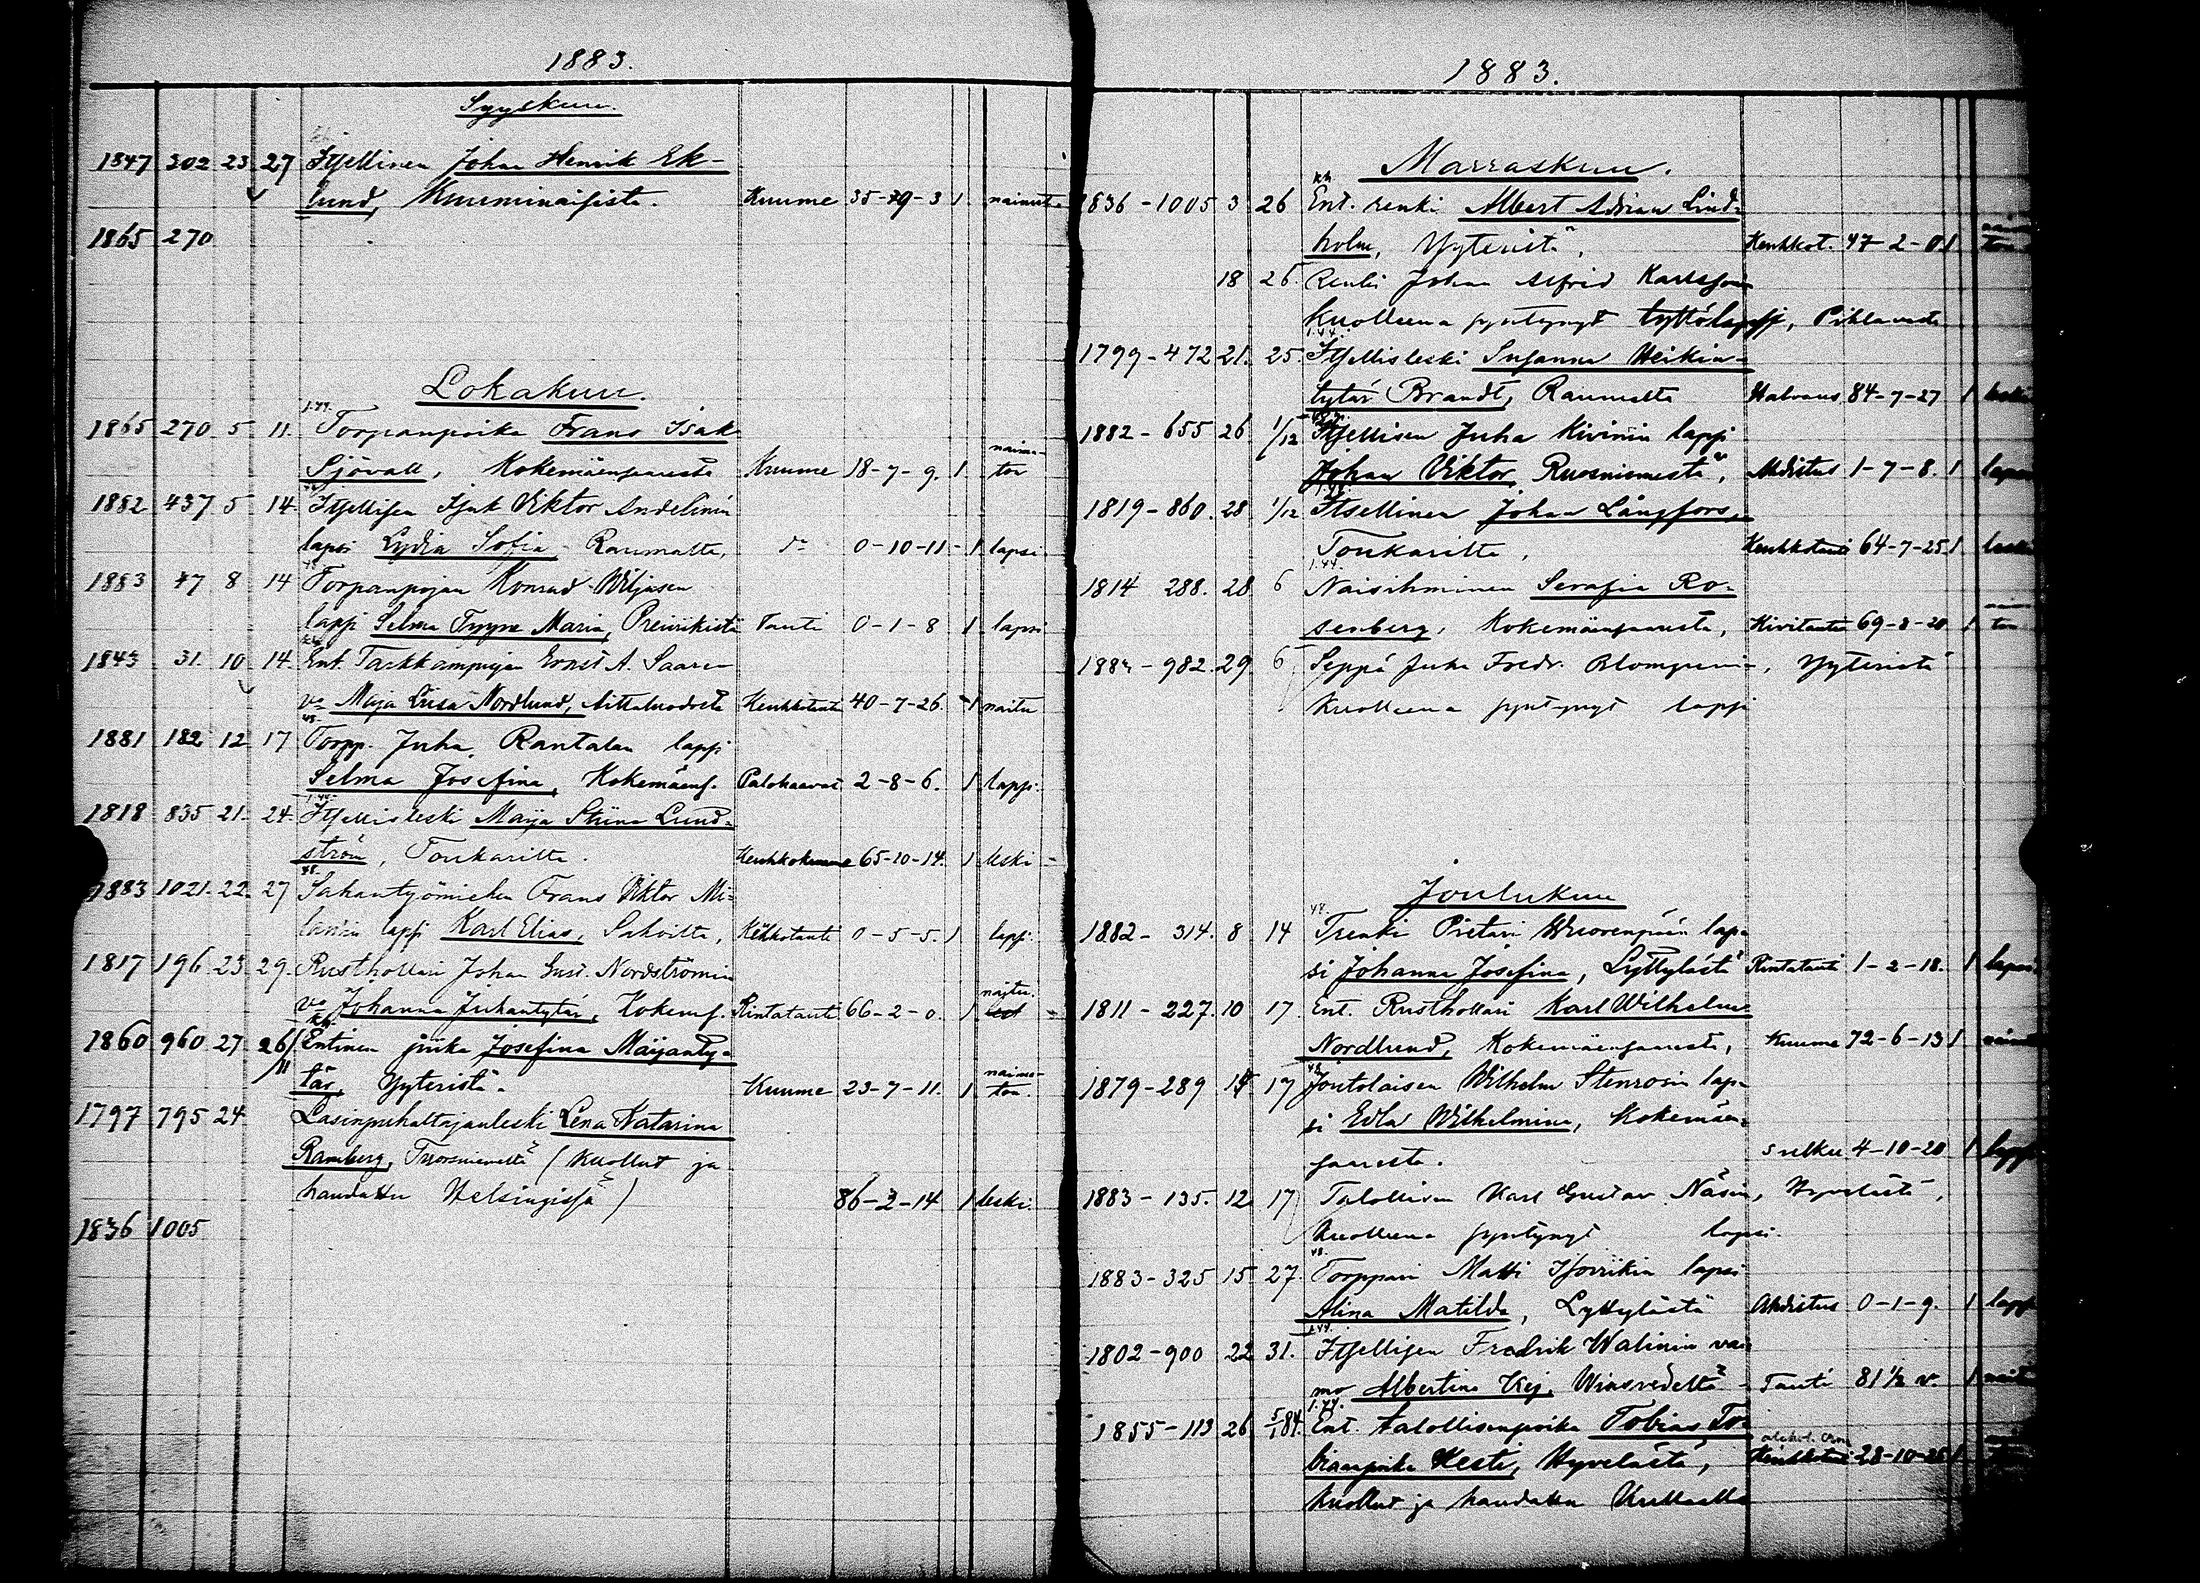 1883.
Syyskuu.
1847 302 23 27 Itsellinen Johan Henrik Ek-
lund, Kuuminaisista. Kuume 35-79-3 1 nainut.
1865 270
Lokakuu.
1865 270 5 11. Torpanpoika Frans Isak
Sjövall, Kokemäensaaresta Kuume 18-7-9. 1 naima-
ton
1882 437 5 14. Itsellisen Isak Viktor Andelinin
lapsi Lydia Sofia, Raumalta, do 0-10-11- 1 lapsi
1883 47 8 14 Torpanpojan Konrad Wiljasen
lapsi Selma Tyyne Maria, Preiviikistä Tauti 0-1-8 1 lapsi
1843 31. 10 14. Ent. Tarkkampujan Ernst A. Saaren
vo Maja Liisa Nordlund, Aittaluodosta Keuhkotauti 40-7-26. 1 naitu
1881 182 12 17 Torpp. Juha Rantalan lapsi
Selma Josefina, Kokemäens. Palohaavat 2-8-6. 1 lapsi.
1818 835 21. 24. Itsellisleski Maija Stiina Lund-
ström, Toukarilta. Keuhkokuume 65-10-14. 1 leski
1883 1021. 22. 27 Sahantyömiehen Frans Viktor Mi-
lanin lapsi Karl Elias, Sahoilta, Keuhkotauti 0-5-5. 1 lapsi.
1817 196 23 29. Rusthollari Johan Gust. Nordströmin
vo Johanna Juhantytär, Kokems. Rintatauti 66-2-0. 1 naitu.
1860 960 27 26/11 Entinen piika Josefina Maijanty-
tär, Yyteristä. Kuume 23-7-11. 1 naima-
ton.
1797 795 24. Lasinpuhaltajanleski Lena Katarina
Ramberg, Tuorsniemeltä (Kuollut ja
haudattu Helsingissä) 86-2-14 1 leski.
1836 1005
1883.
Marraskuu.
1836-1005 3 26 Ent. renki Albert Adrian Lind-
holm, Yyteristä, Keuhkot. 47-2-0 1
18 25. Renki Johan Alfrid Karlsson
kuolleena syntynyt tyttölapsi, Pihlavasta
1799-472 21. 25. Itsellisleski Susanna Heikin-
tytär Brandt, Raumalta Halvaus 84-7-27 1 leski
1882-655 26. 1/12 Itsellisen Juha Kivinin lapsi
Johan Viktor, Ruosniemestä, Ahdistus 1-7-8. 1 lapsi
1819-860. 28 1/12 Itsellinen Johan Långfors,
Toukarilta, Keuhkotauti 64-7-25 1 leski
1814 288. 28 6 Naisihminen Serafia Ro-
senberg, Kokemäensaaresta, Kivitauti 69-8-20 1
1883-982. 29. 6 Seppä Juha Fredr. Blomqvistin, Yyteristä
kuolleena syntynyt lapsi
Joulukuu
1882-314. 8 14 Trenki Pietari Wuorenpään lap-
si Johanna Josefina, Lyttylästä Rintatauti 1-2-18. 1 lapsi
1811-227. 10 17. Ent. Rusthollari Karl Wilhelm
Nordlund, Kokemäensaaresta, Kuume 72-6-13 1
1879-289 14 17 Joutolaisen Wilhelm Stenrosin lap-
si Edla Wilhelmina, Kokemäen-
saaresta. sulku 4-10-20 1 lapsi
1883-135. 12 17 Talollisen Karl Gustav Näsin, Hyvelästä,
kuolleena syntynyt lapsi.
1883-325 15 27. Torppari Matti Isoviikin lapsi
Alina Matilda, Lyttylästä Ahdistus 0-1-9. 1 lapsi
1802-900 22 31. Itsellisen Fredrik Walinin vai-
mo Albertina Kej. Wiasvedeltä Tauti 81 1/2 v. 1 naitu
1855-113 26 5/1 84. Ent. talollisenpoika Tobias To-
biaanpoika Kesti, Hyvelästä, Keuhkotauti 28-10-26 1
kuollut ja haudattu Kullaalla